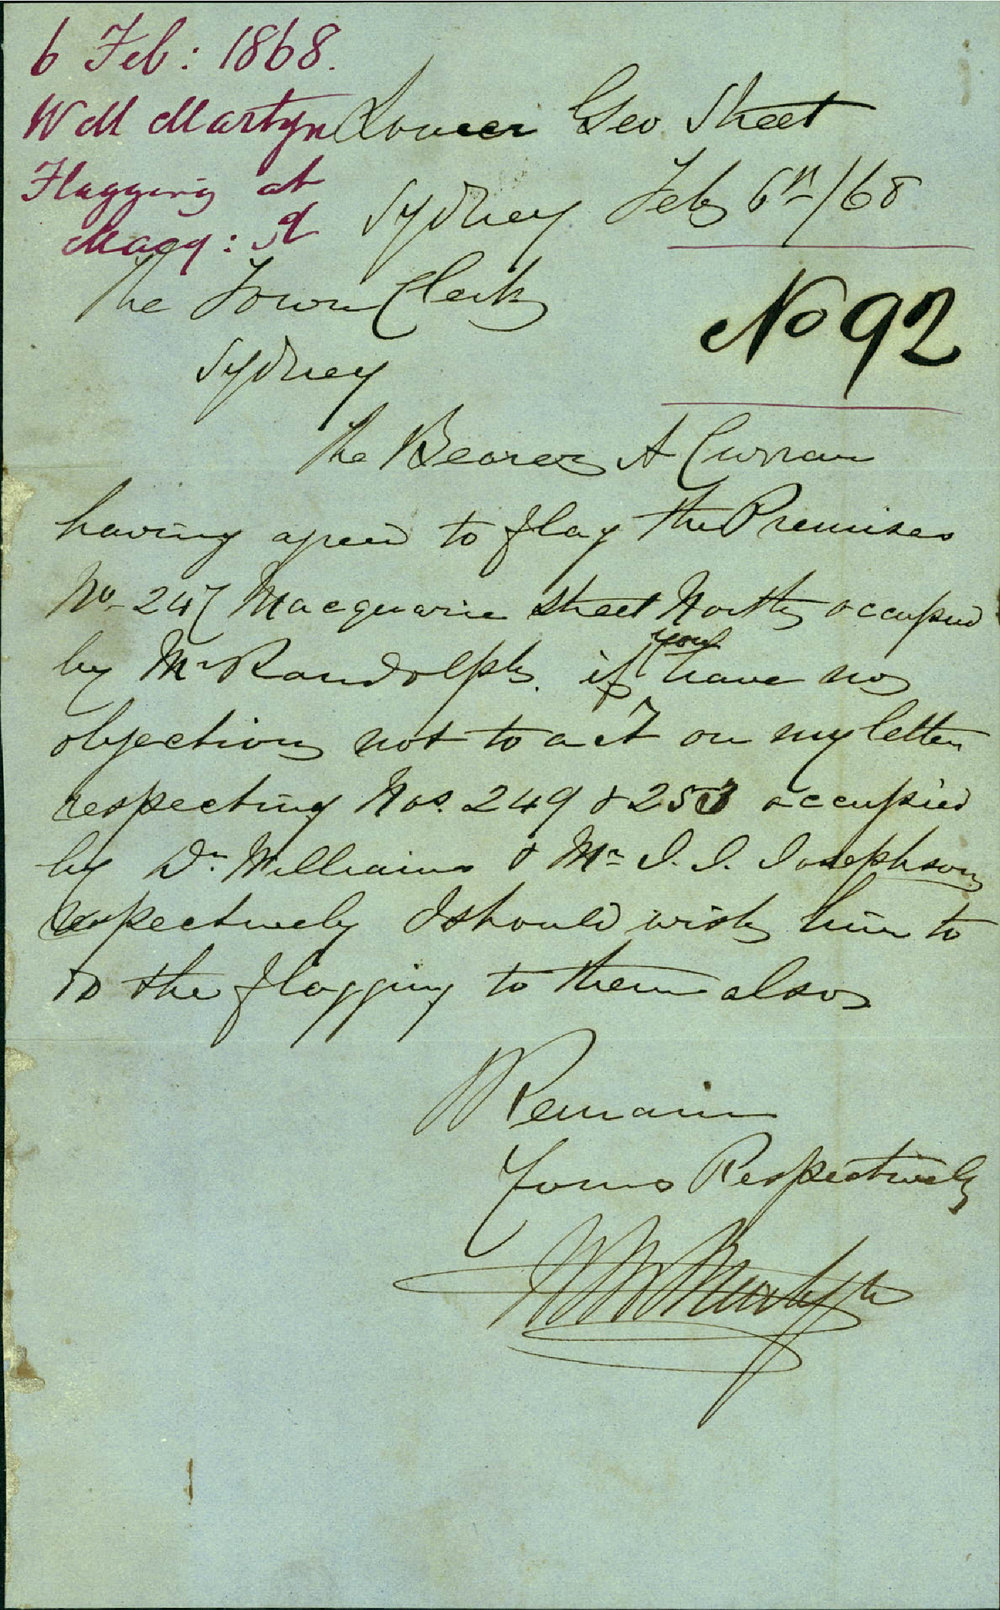 6 Feb: 1868.
W M Martyn
Flagging at
Macq: St
Lower Geo Street
Sydney Feby 6th/68
No 92
The Town Clerk
Sydney
The Bearer A Curran
having agreed to flag the Premises
No. 247 Macquarie Street North occupied
by Mr Randolph. if you have no
objection not to act on my letter
respecting Nos. 249 & 251 occupied
by Dr Williams & Mr I. I. Josephson
respectively I should wish him to
do the flagging to them also
I Remain
Yours Respectively
W M Martyn